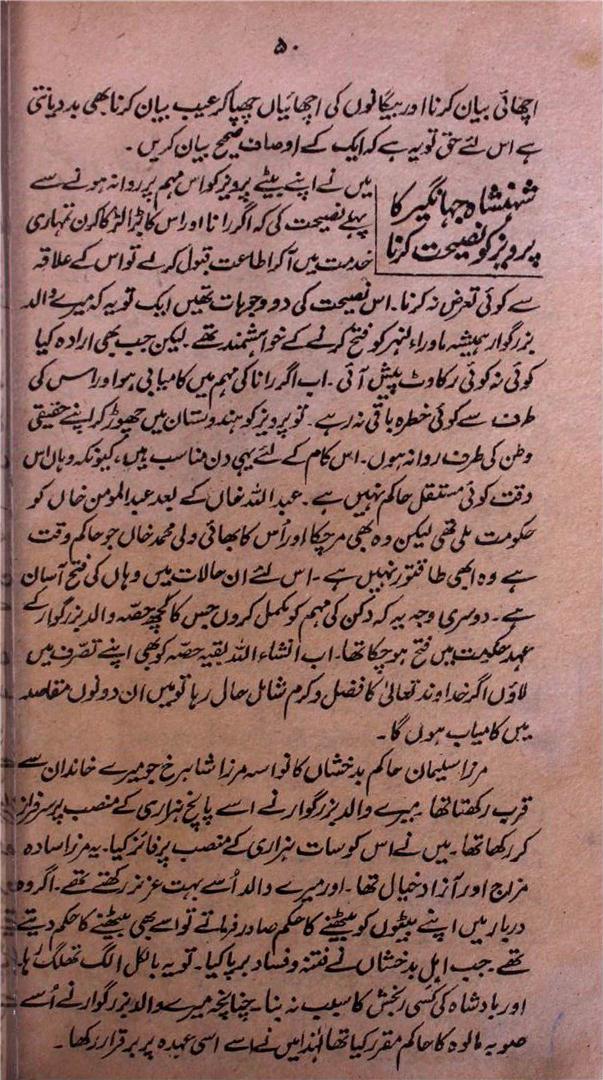 ۵۰
اچھائی بیان کرنا اور بیگانوں کی اچھائیاں چھپا کر عیب بیان کرنا بھی بددیانتی
ہے اس لئے حق تو یہ ہے کہ ایک کے اوصاف صحیح بیان کریں۔
شہنشاہ جہانگیر کا
پرویز کو نصیحت کرنا
میں نے اپنے بیٹے پرویز کو اس مہم پر روانہ ہونے سے
پہلے نصیحت کی کہ اگر رانا اور اس کا بڑا لڑکا کرن تمہاری
خدمت میں آکر اطاعت قبول کرلے تو اس کے علاقہ
سے کوئی تعرض نہ کرنا۔ اس نصیحت کی دو وجوہات تھیں ایک تو یہ کہ میرے والد
بزرگوار ہمیشہ ماوراء النہر کو فتح کرنے کے خواہشمند تھے۔ لیکن جب بھی ارادہ کیا
کوئی نہ کوئی رکاوٹ پیش آئی۔ اب اگر رانا کی مہم میں کامیابی ہو اور اس کی
طرف سے کوئی خطرہ باقی نہ رہے۔ تو پرویز کو ہندوستان میں چھوڑ کر اپنے حقیقی
وطن کی طرف روانہ ہوں۔ اس کام کے لئے یہی دن مناسب ہیں، کیونکہ وہاں اس
وقت کوئی مستقل حاکم نہیں ہے۔ عبداللہ خاں کے بعد عبدالمومن خاں کو
حکومت ملی تھی لیکن وہ بھی مرچکا اور اُس کا بھائی ولی محمد خاں جو حاکم وقت
ہے وہ ابھی طاقتور نہیں ہے۔ اس لئے ان حالات میں وہاں کی فتح آسان
ہے۔ دوسری وجہ یہ کہ دکن کی مہم کو مکمل کروں جس کا کچھ حصہ والد بزرگوار کے
عہد حکومت میں فتح ہوچکا تھا۔ اب انشاء اللہ بقیہ حصہ کو بھی اپنے تصرف میں
لاؤں اگر خداوند تعالیٰ کا فضل و کرم شامل حال رہا تو میں ان دونوں مقاصد
میں کامیاب ہوں گا۔
مرزا سلیمان حاکم بدخشاں کا نواسہ مرزا شاہرخ جو میرے خاندان سے
قرب رکھتا تھا۔ میرے والد بزرگوار نے اسے پانچ ہزاری کے منصب پر سرفراز
کر رکھا تھا۔ میں نے اس کو سات ہزاری کے منصب پر فائز کیا۔ یہ مرزا سادہ
مزاج اور آزاد خیال تھا۔ اور میرے والد اُسے بہت عزیز رکھتے تھے۔ اگر وہ
دربار میں اپنے بیٹوں کو بیٹھنے کا حکم صادر فرماتے تو اسے بھی بیٹھنے کا حکم دیتے
تھے۔ جب اہل بدخشاں نے فتنہ و فساد برپا کیا۔ تو یہ بالکل الگ تھلگ رہا۔
اور بادشاہ کی کسی رنجش کا سبب نہ بنا۔ چنانچہ میرے والد بزرگوار نے اُسے
صوبہ مالوہ کا حاکم مقرر کیا تھا لہٰذا میں نے اسے اسی عہدہ پر برقرار رکھا۔